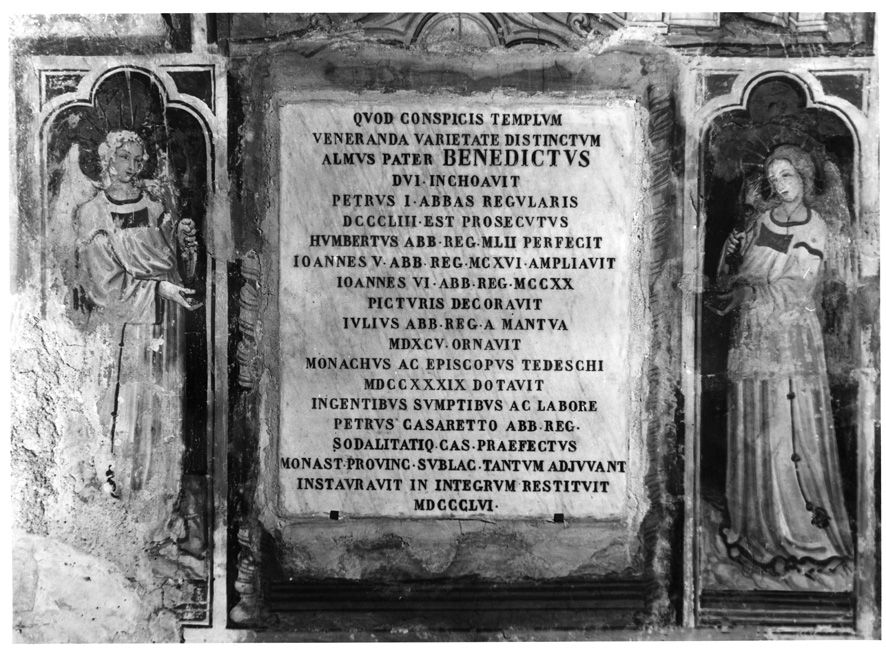 QVOD CONSPICIS TEMPLVM
VENERANDA VARIETATE DISTINCTVM
ALMVS PATER BENEDICTVS
DVI·INCHOAVIT
PETRVS I·ABBAS REGVLARIS
DCCCLIII·EST PROSECVTVS
HVMBERTVS ABB·REG·MLII PERFECIT
IOANNES V·ABB·REG·MCXVI·AMPLIAVIT
IOANNES VI·ABB·REG·MCCXX
PICTVRIS DECORAVIT
IVLIVS ABB·REG·A MANTVA
MDXCV·ORNAVIT
MONACHVS AC EPISCOPVS TEDESCHI
MDCCXXXIX DOTAVIT
INGENTIBVS SVMPTIBVS AC LABORE
PETRVS CASARETTO ABB·REG·
SODALITATIQ·CAS·PRAEFECTVS
MONAST·PROVINC·SVBLAC·TANTVM ADJVVANT
INSTAVRAVIT IN INTEGRVM RESTITVIT
MDCCCLVI·